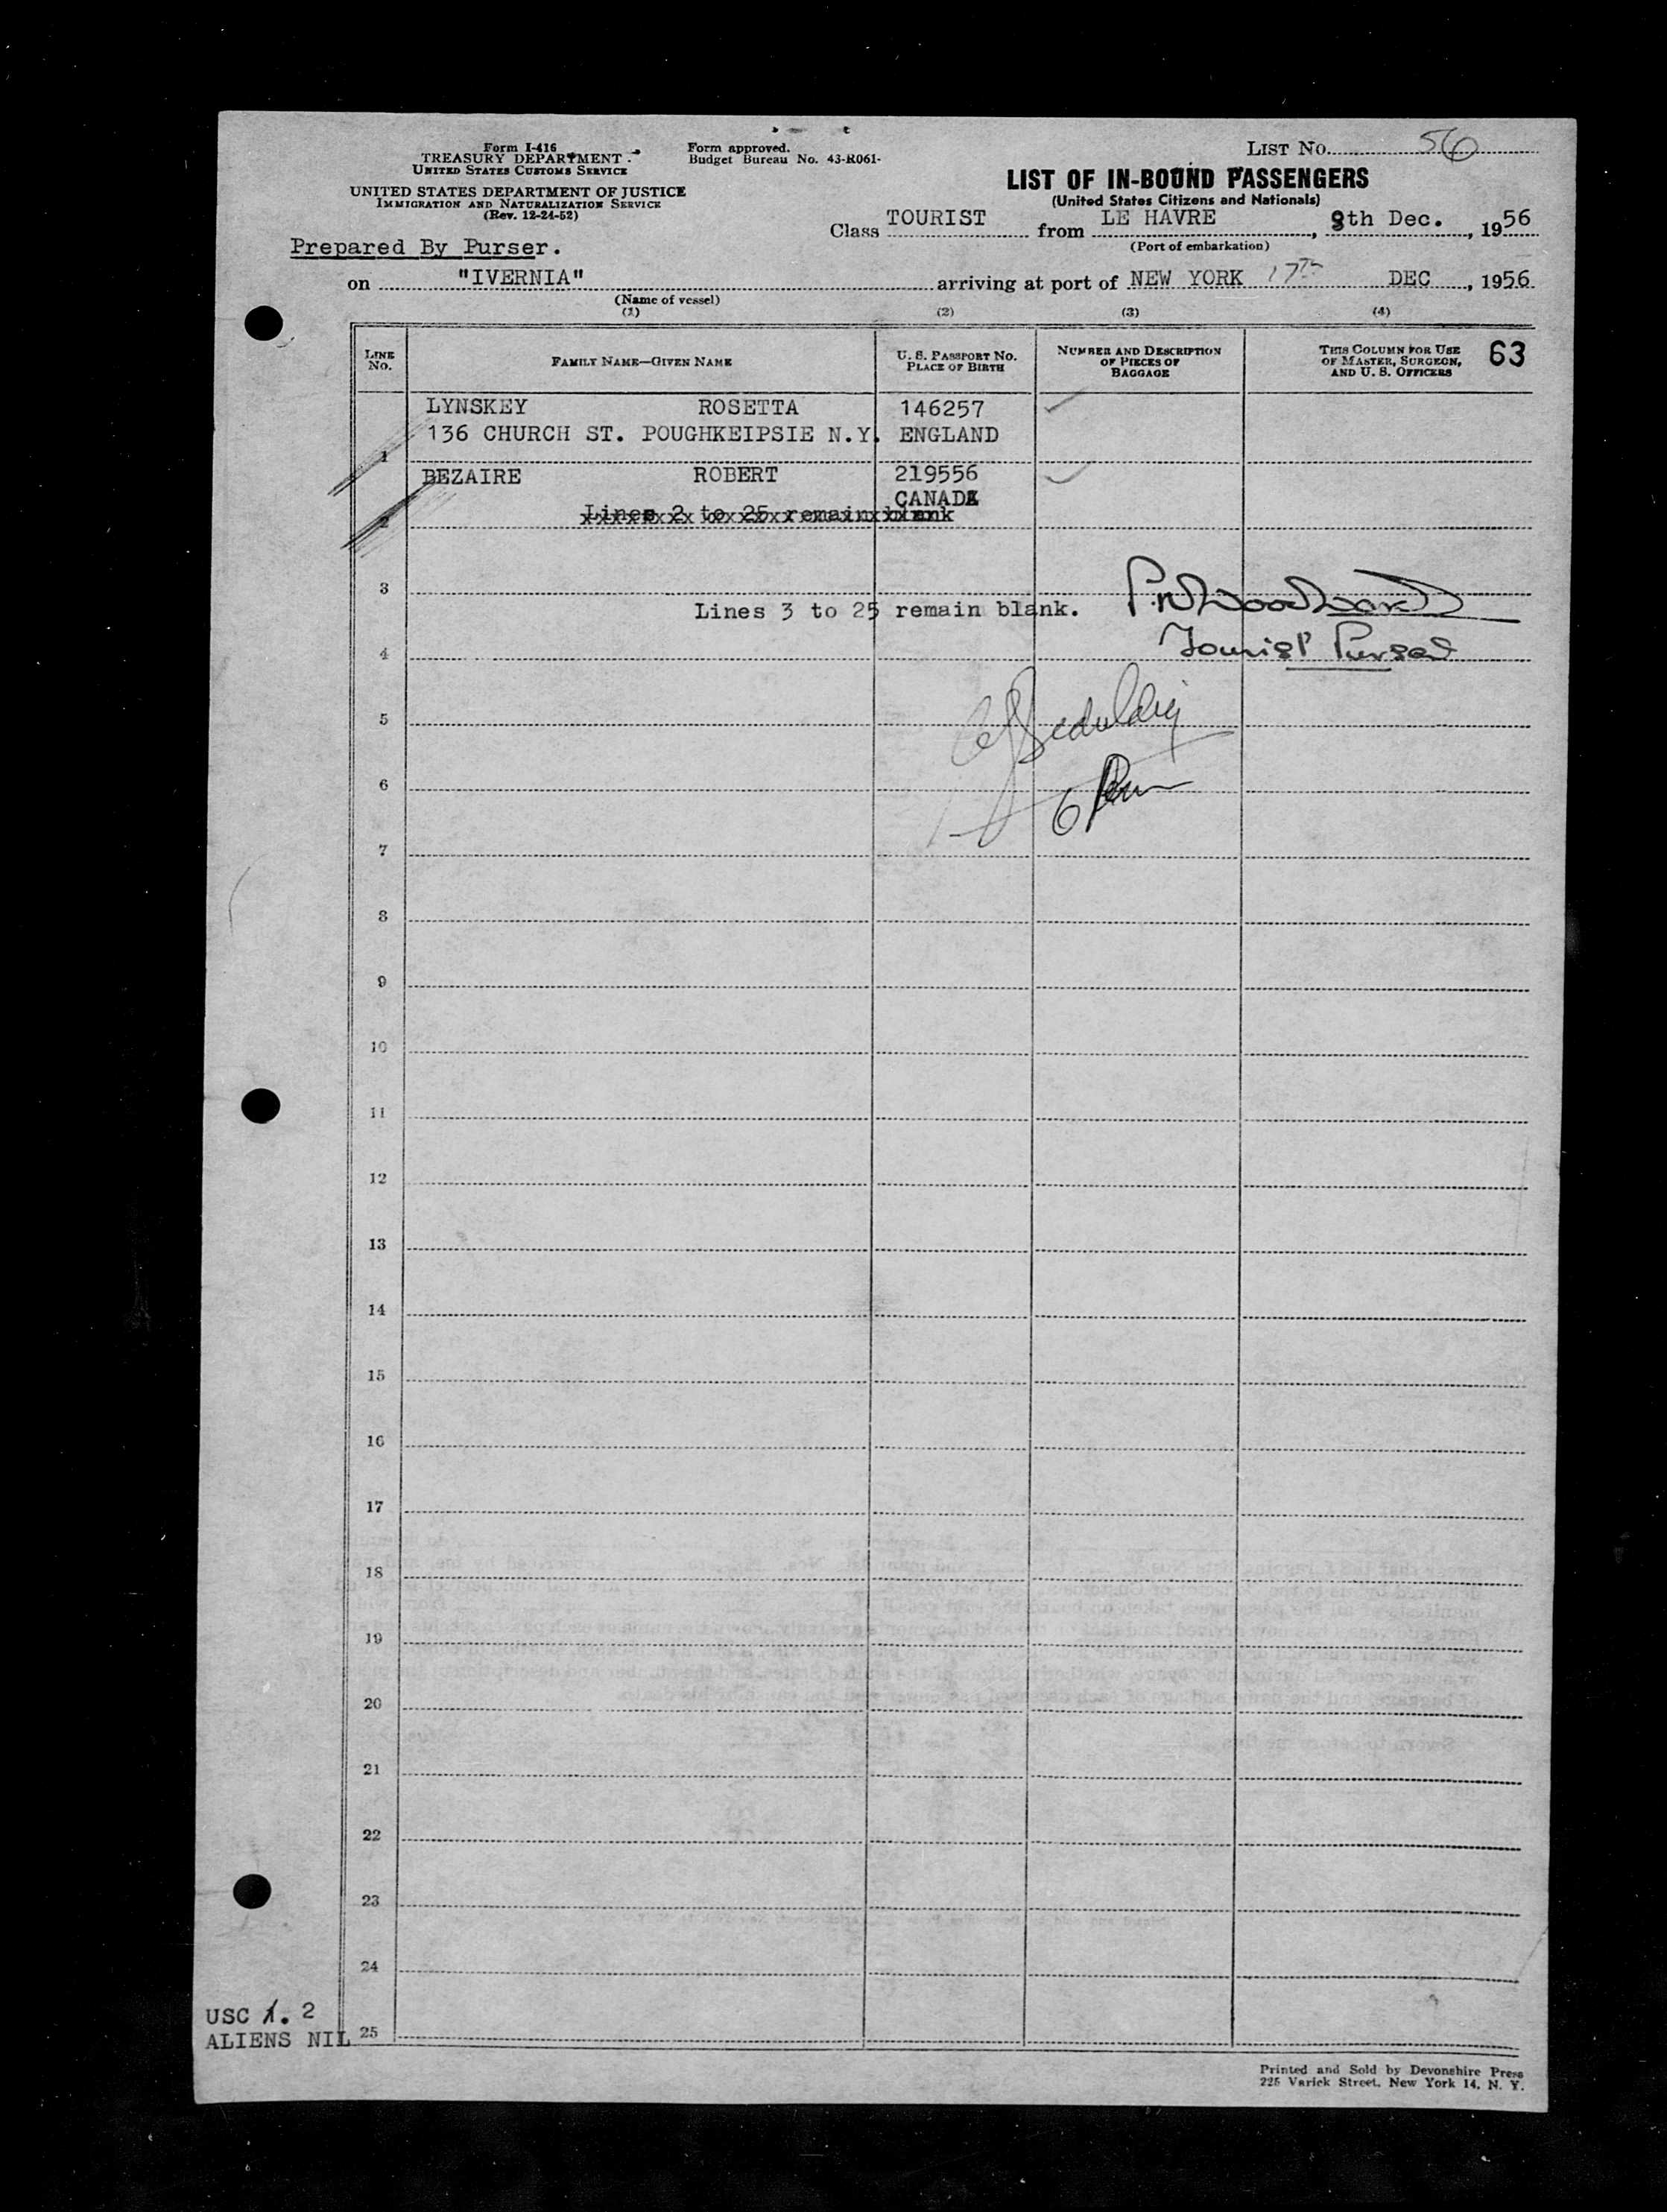 Form I-416
TREASURY DEPARTMENT
UNITED STATES CUSTOMS SERVICE
UNITED STATES DEPARTMENT OF JUSTICE
IMMIGRATION AND NATURALIZATION SERVICE
(Rev. 12-24-52)
Form approved.
Budget Bureau No. 43-R061-
LIST No. 56
LIST OF IN-BOUND PASSENGERS
(United States Citizens and Nationals)
Class TOURIST from LE HAVRE, 9th Dec., 1956
(Port of embarkation)
Prepared By Purser.
on "IVERNIA" arriving at port of NEW YORK 17th DEC, 1956
(Name of vessel)
(1) (2) (3) (4)
LINE No. FAMILY NAME—GIVEN NAME U. S. PASSPORT No. PLACE OF BIRTH NUMBER AND DESCRIPTION OF PIECES OF BAGGAGE THIS COLUMN FOR USE OF MASTER, SURGEON, AND U. S. OFFICERS 63
LYNSKEY ROSETTA 146257
136 CHURCH ST. POUGHKEIPSIE N.Y. ENGLAND
1
BEZAIRE ROBERT 219556
CANADA
Lines 2 to 25 remain blank
2
3
Lines 3 to 25 remain blank.
Tourist Purser
4
5
6
7
8
9
10
11
12
13
14
15
16
17
18
19
20
21
22
23
24
25
USC 1. 2
ALIENS NIL
Printed and Sold by Devonshire Press
225 Varick Street, New York 14, N. Y.